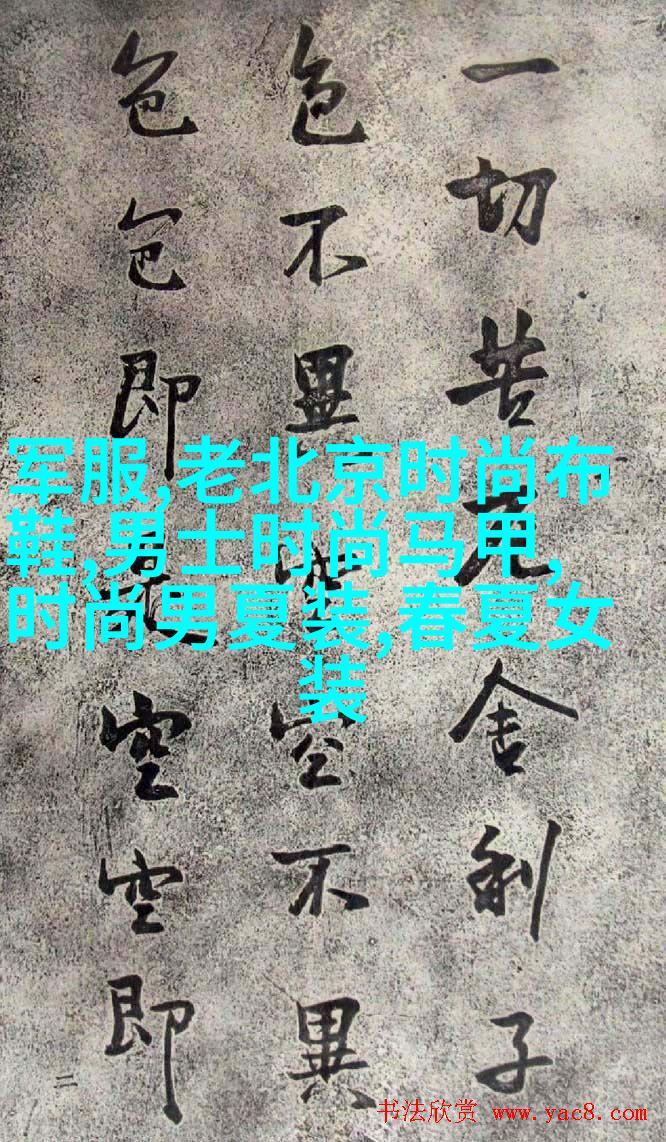 一切苦厄舍利子
色不異空不異
色色即空空即
二
军服,老北京时尚布
鞋,男士时尚马甲,
时尚男夏装,春夏女
装
书法欣赏 www.yac8.com